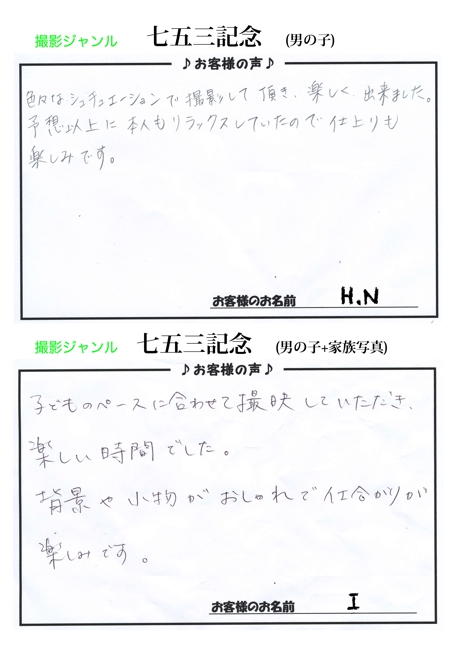 撮影ジャンル 七五三記念 (男の子)
♪お客様の声♪
色々なシュチュエーションで撮影して頂き、楽しく出来ました。
予想以上に本人もリラックスしていたので仕上りも
楽しみです。
お客様のお名前 H.N
撮影ジャンル 七五三記念 (男の子+家族写真)
♪お客様の声♪
子どものペースに合わせて撮映していただき、
楽しい時間でした。
背景や小物がおしゃれで仕合がりが
楽しみです。
お客様のお名前 I